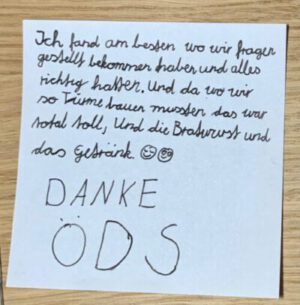 Ich fand am besten wo wir fragen
gestellt bekommen haben und alles
richtig hatten. Und da wo wir
so Türme bauen mussten das war
total toll, Und die Bratwurst und
das Getränk.
DANKE
ÖDS